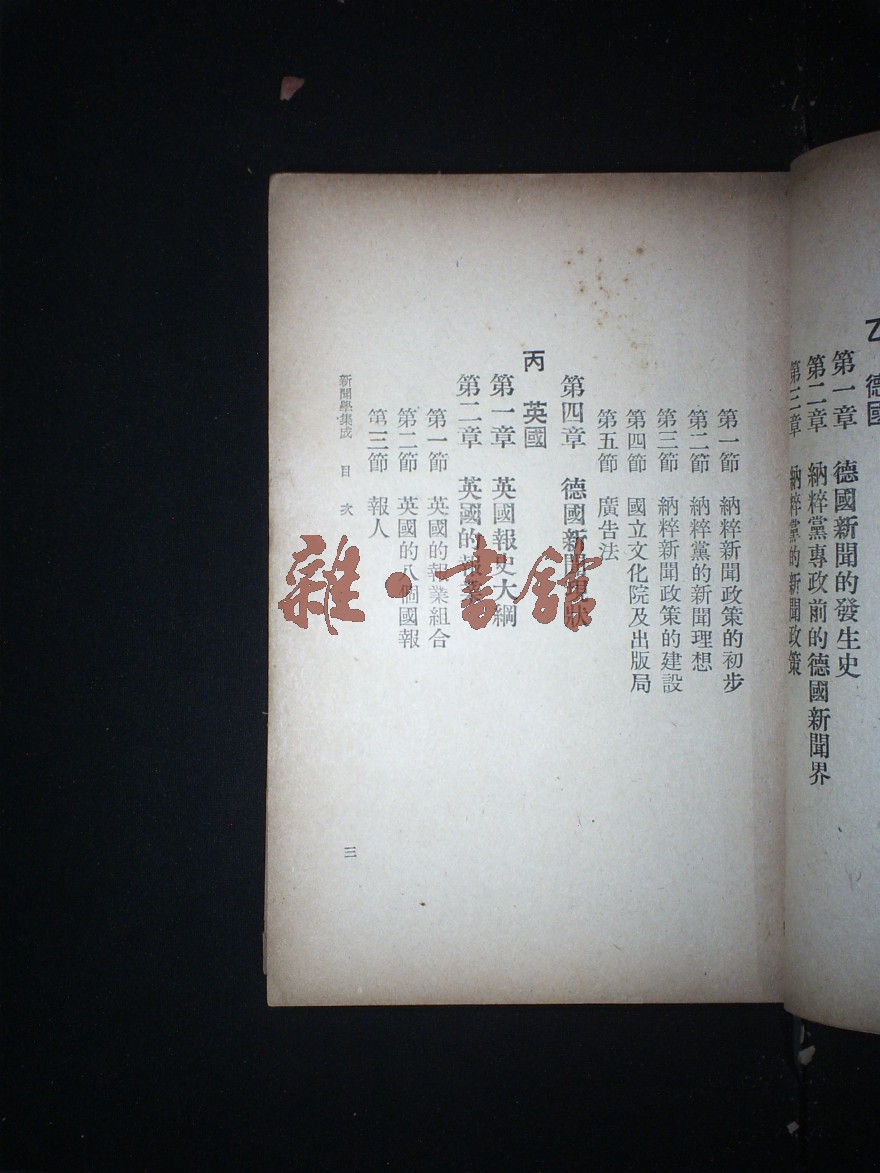 乙 德國
第一章 德國新聞的發生史
第二章 納粹黨專政前的德國新聞界
第三章 納粹黨的新聞政策
第一節 納粹新聞政策的初步
第二節 納粹黨的新聞理想
第三節 納粹新聞政策的建設
第四節 國立文化院及出版局
第五節 廣告法
第四章 德國新聞現狀
丙 英國
第一章 英國報史大綱
第二章 英國的報業
第一節 英國的報業組合
第二節 英國的八個國報
第三節 報人
新聞學集成 目次 三
雜·書館